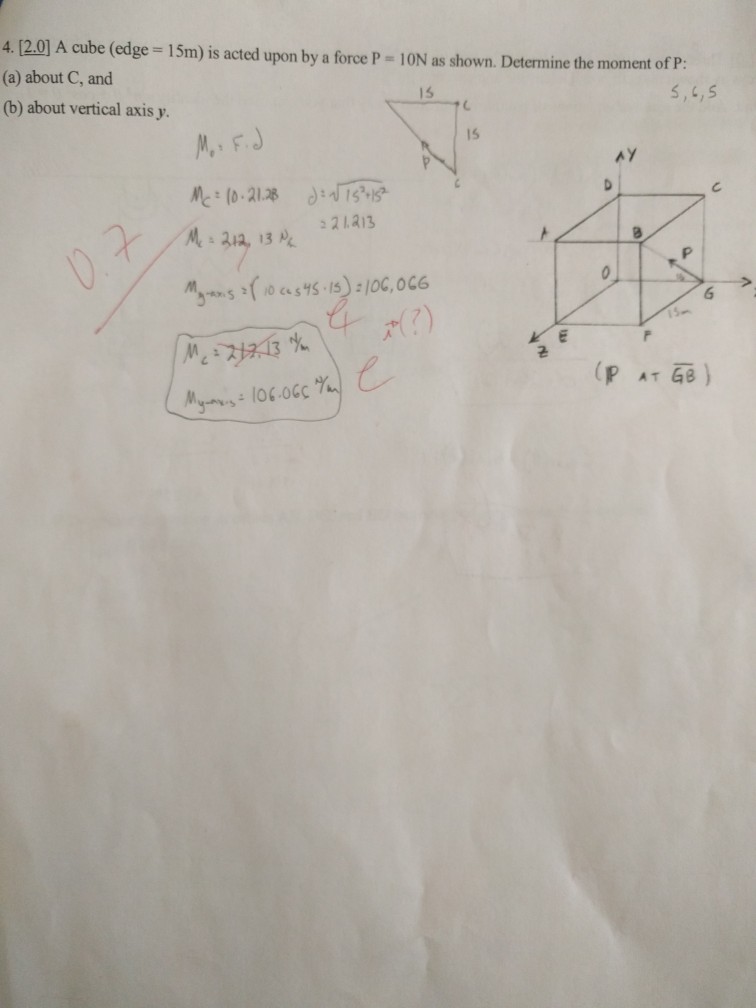 4. [2.0] A cube (edge = 15m) is acted upon by a force P = 10N as shown. Determine the moment of P:
(a) about C, and
(b) about vertical axis y.
5,6,5
15
C
15
P
G
M₀ = F.d
Mc = 10.21.213
d = √15²+15²
= 21.213
Mc = 212,13
My-axis = (10 cos45.15) = 106,066
0.7
(?)
Mc = 212.13 N/m
My-axis = 106.066 N/m
Y
D
C
A
B
P
O
G
15m
E
F
Z
(P AT GB)